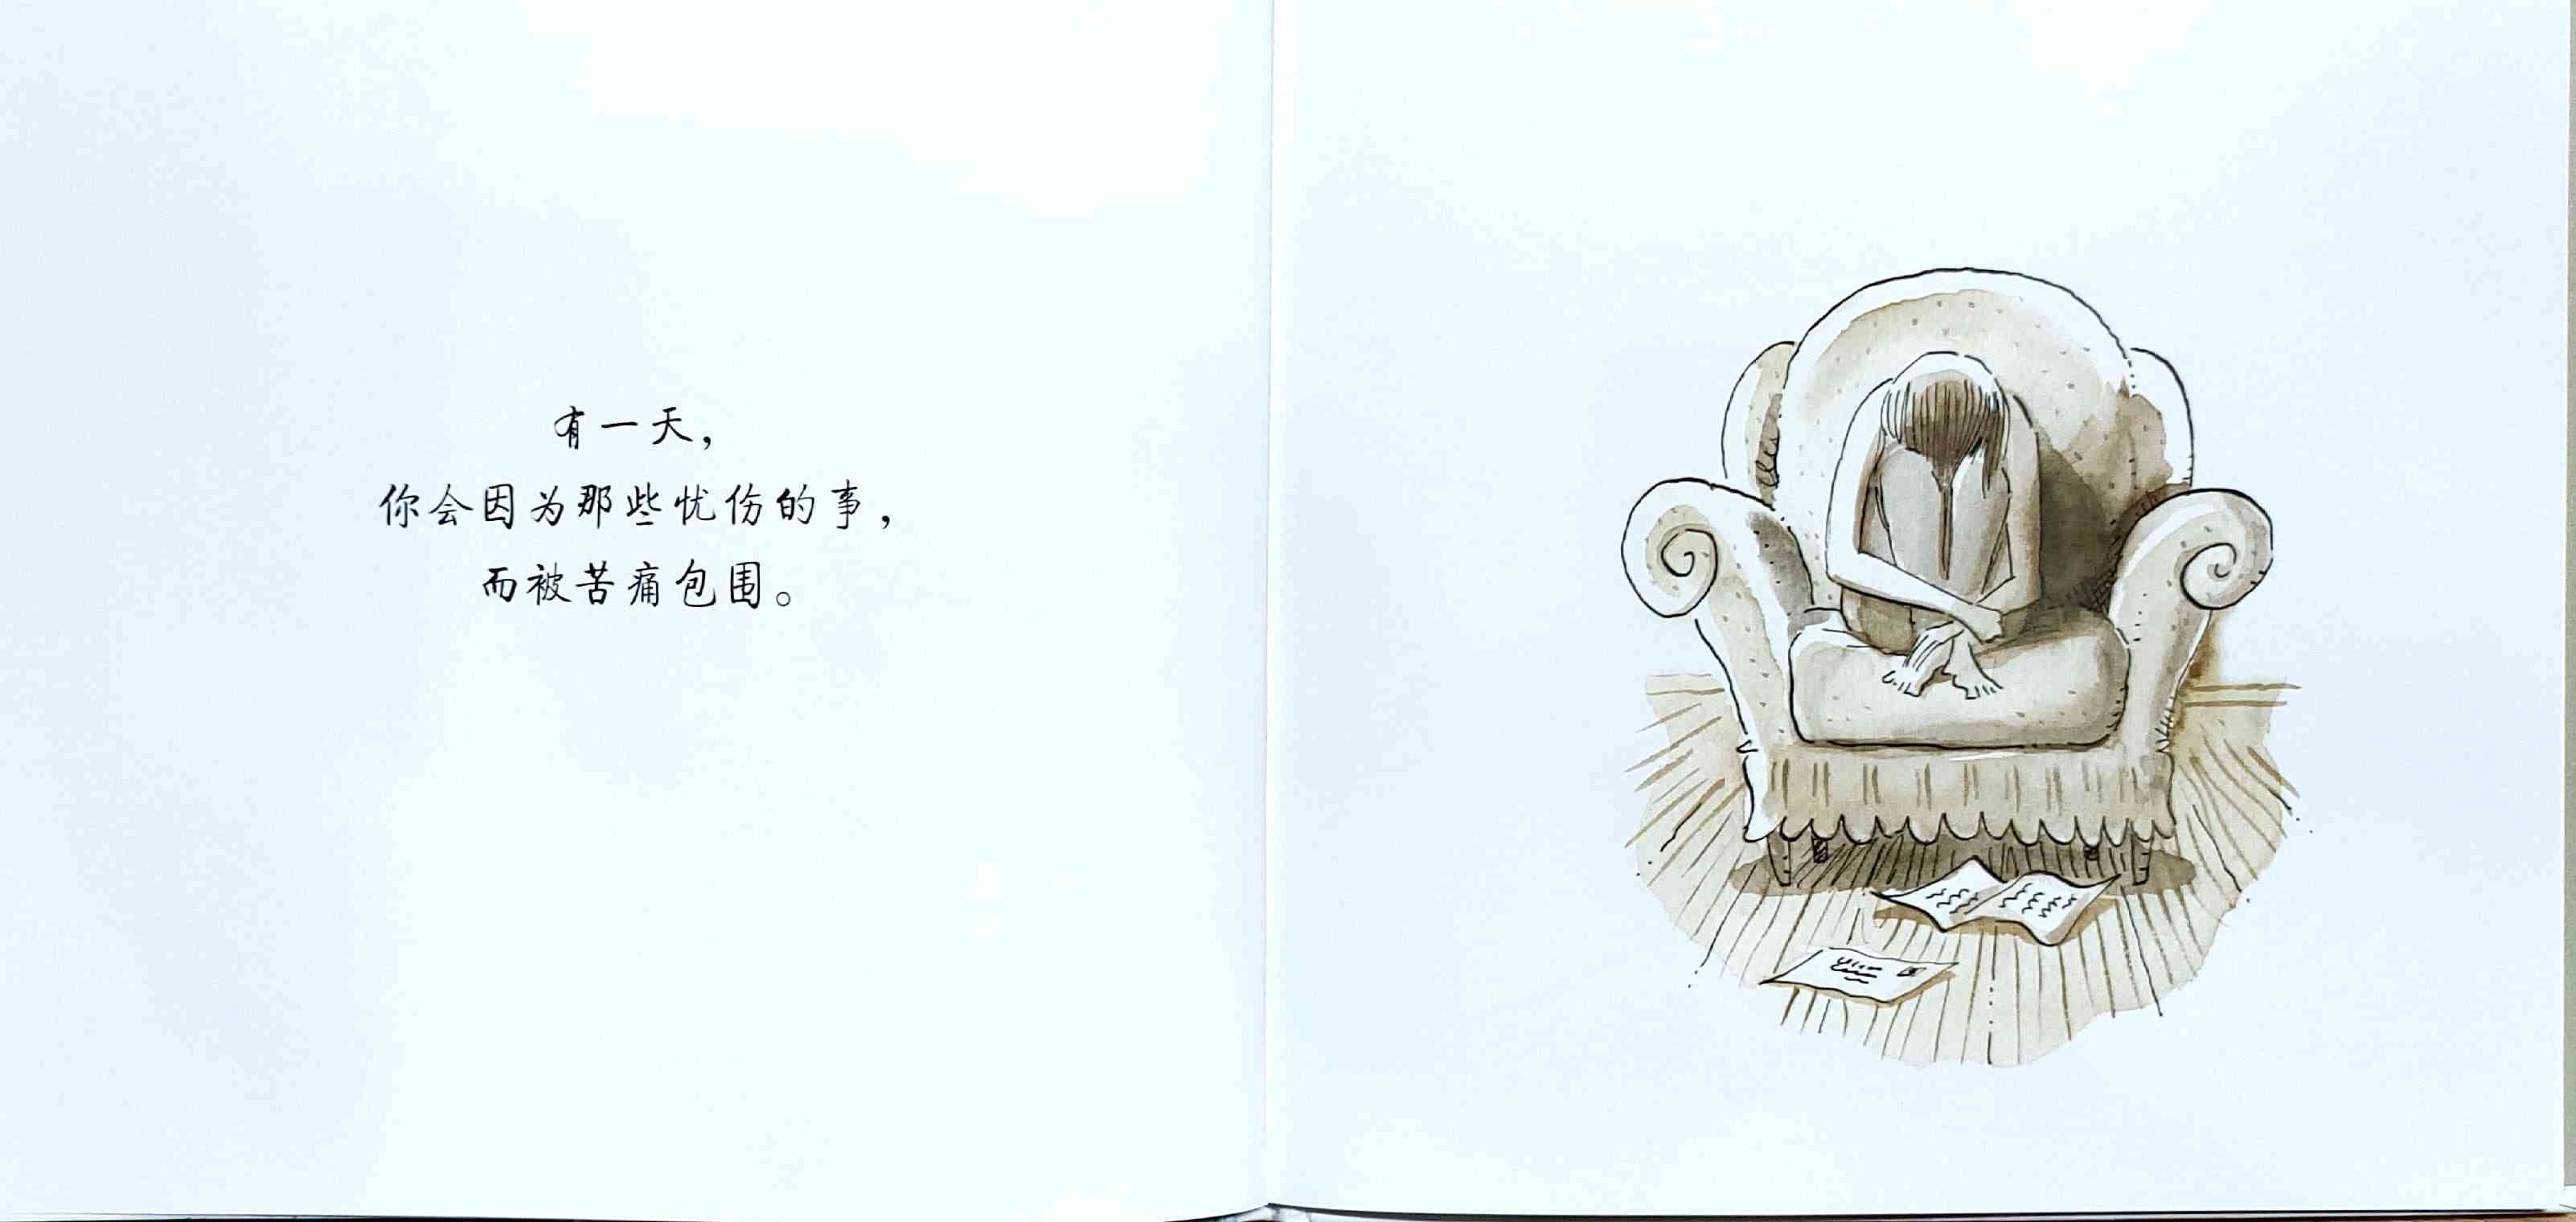 有一天，
你会因为那些忧伤的事，
而被苦痛包围。